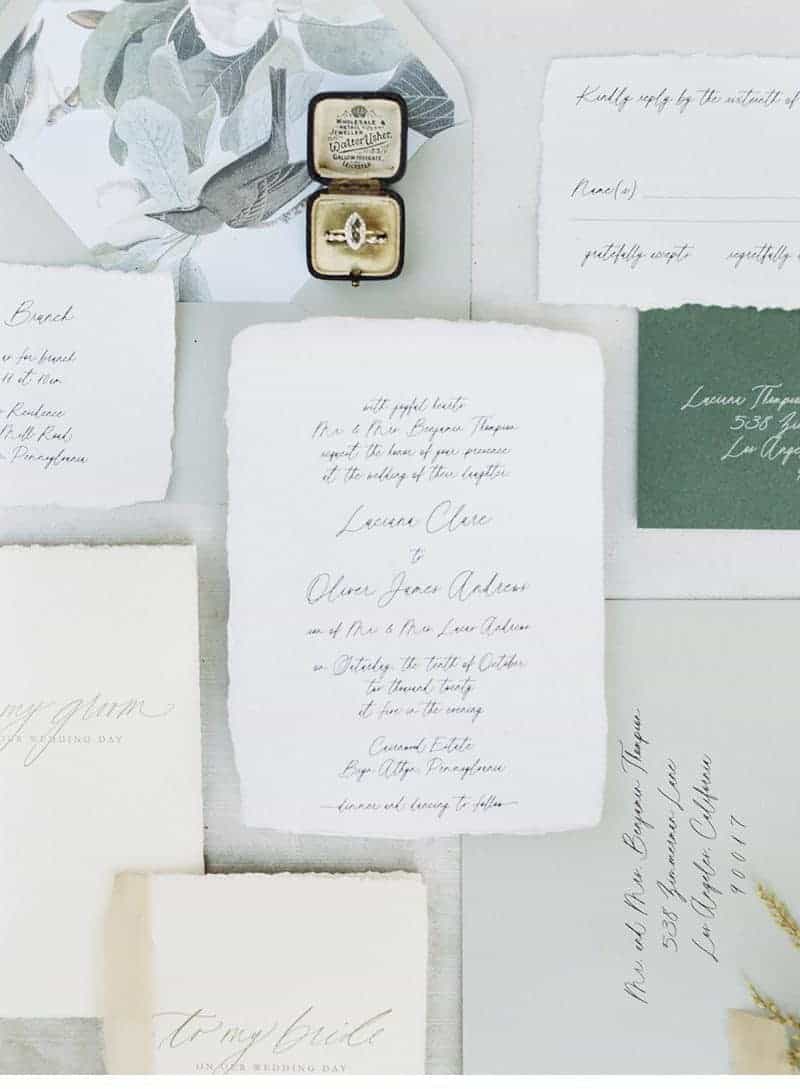 WHOLESALE &
RETAIL
JEWELLER
Walter Usher
GALLOWTREEGATE
LEICESTER
Kindly reply by the sixteenth of
Name(s)
gratefully accepts regretfully
Brunch
for brunch
at 10am
Residence
Mill Road
Pennsylvania
with joyful hearts
Mr. & Mrs. Benjamin Thompson
request the honor of your presence
at the wedding of their daughter
Laciana Clare
to
Oliver James Andrews
son of Mr. & Mrs. Lucas Andrews
on Saturday, the tenth of October
two thousand twenty
at five in the evening
Cairnwood Estate
Bryn Athyn, Pennsylvania
dinner and dancing to follow
Laciana Thompson
538
Los Angeles
my groom
OUR WEDDING DAY
to my bride
ON OUR WEDDING DAY
Mr. and Mrs. Benjamin Thompson
538 Zimmerman Lane
Los Angeles, California
90017